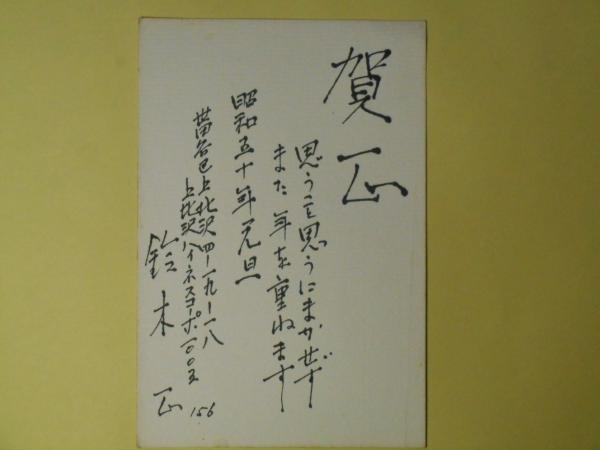 賀正
思うこと思うにまかせず
また年を重ねます
昭和五十年元旦
世田谷区上北沢四-一九-一八
上北沢ハイネスコーポ一〇〇五
鈴木正
156